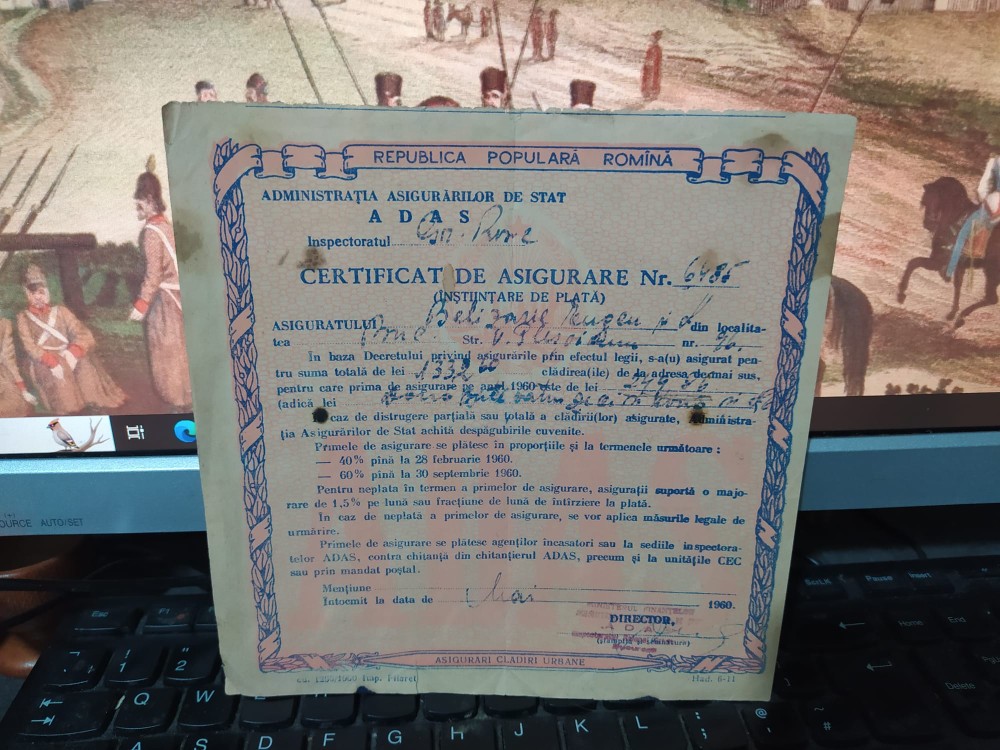 REPUBLICA POPULARĂ ROMÎNĂ
ADMINISTRAȚIA ASIGURĂRILOR DE STAT
ADAS
Inspectoratul
CERTIFICAT DE ASIGURARE Nr. 6485
(INȘTIINȚARE DE PLATĂ)
ASIGURATULUI din localita-
tea Str. nr. 96
În baza Decretului privind asigurările prin efectul legii, s-a(u) asigurat pen-
tru suma totală de lei clădirea(ile) de la adresa de mai sus,
pentru care prima de asigurare pe anul 1960 este de lei
(adică lei
caz de distrugere parțială sau totală a clădirii(lor) asigurate, Administra-
ția Asigurărilor de Stat achită despăgubirile cuvenite.
Primele de asigurare se plătesc în proporțiile și la termenele următoare :
— 40% pînă la 28 februarie 1960.
— 60% pînă la 30 septembrie 1960.
Pentru neplata în termen a primelor de asigurare, asigurații suportă o majo-
rare de 1,5% pe lună sau fracțiune de lună de întîrziere la plată.
În caz de neplată a primelor de asigurare, se vor aplica măsurile legale de
urmărire.
Primele de asigurare se plătesc agenților încasatori sau la sediile inspectora-
telor ADAS, contra chitanță din chitanțierul ADAS, precum și la unitățile CEC
sau prin mandat poștal.
Mențiune
Întocmit la data de Mai 1960.
MINISTERUL FINANȚELOR
DIRECTOR,
ADAS
(ștampila și semnătura)
ASIGURĂRI CLĂDIRI URBANE
Imp. Filaret
SOURCE AUTO/SET
Esc
F1
ScrLK
Pause
Insert
Home
End
Delete
1
2
Q
W
A
S
D
F
G
H
J
K
L